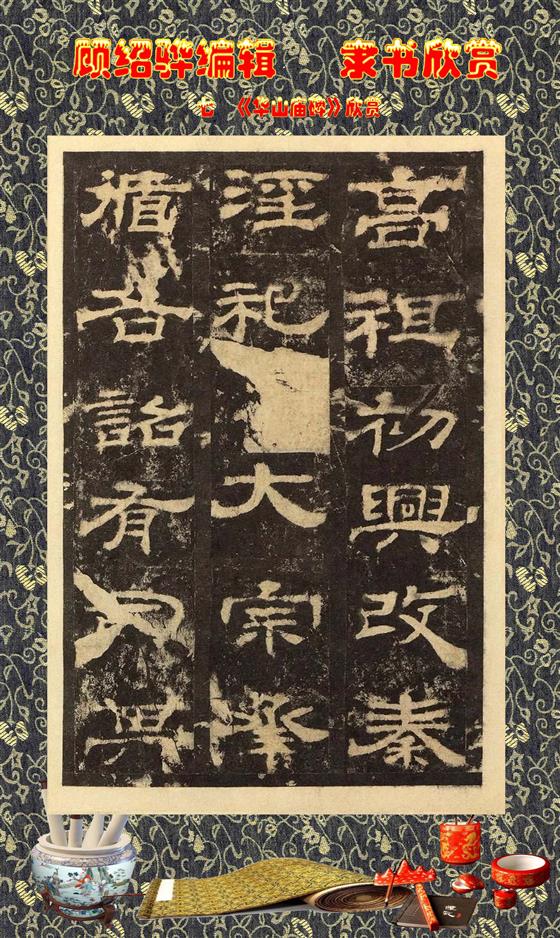 顾绍骅编辑 隶书欣赏
《华山庙碑》欣赏
高祖初興改秦
淫祀大宗承
循各詔有司其